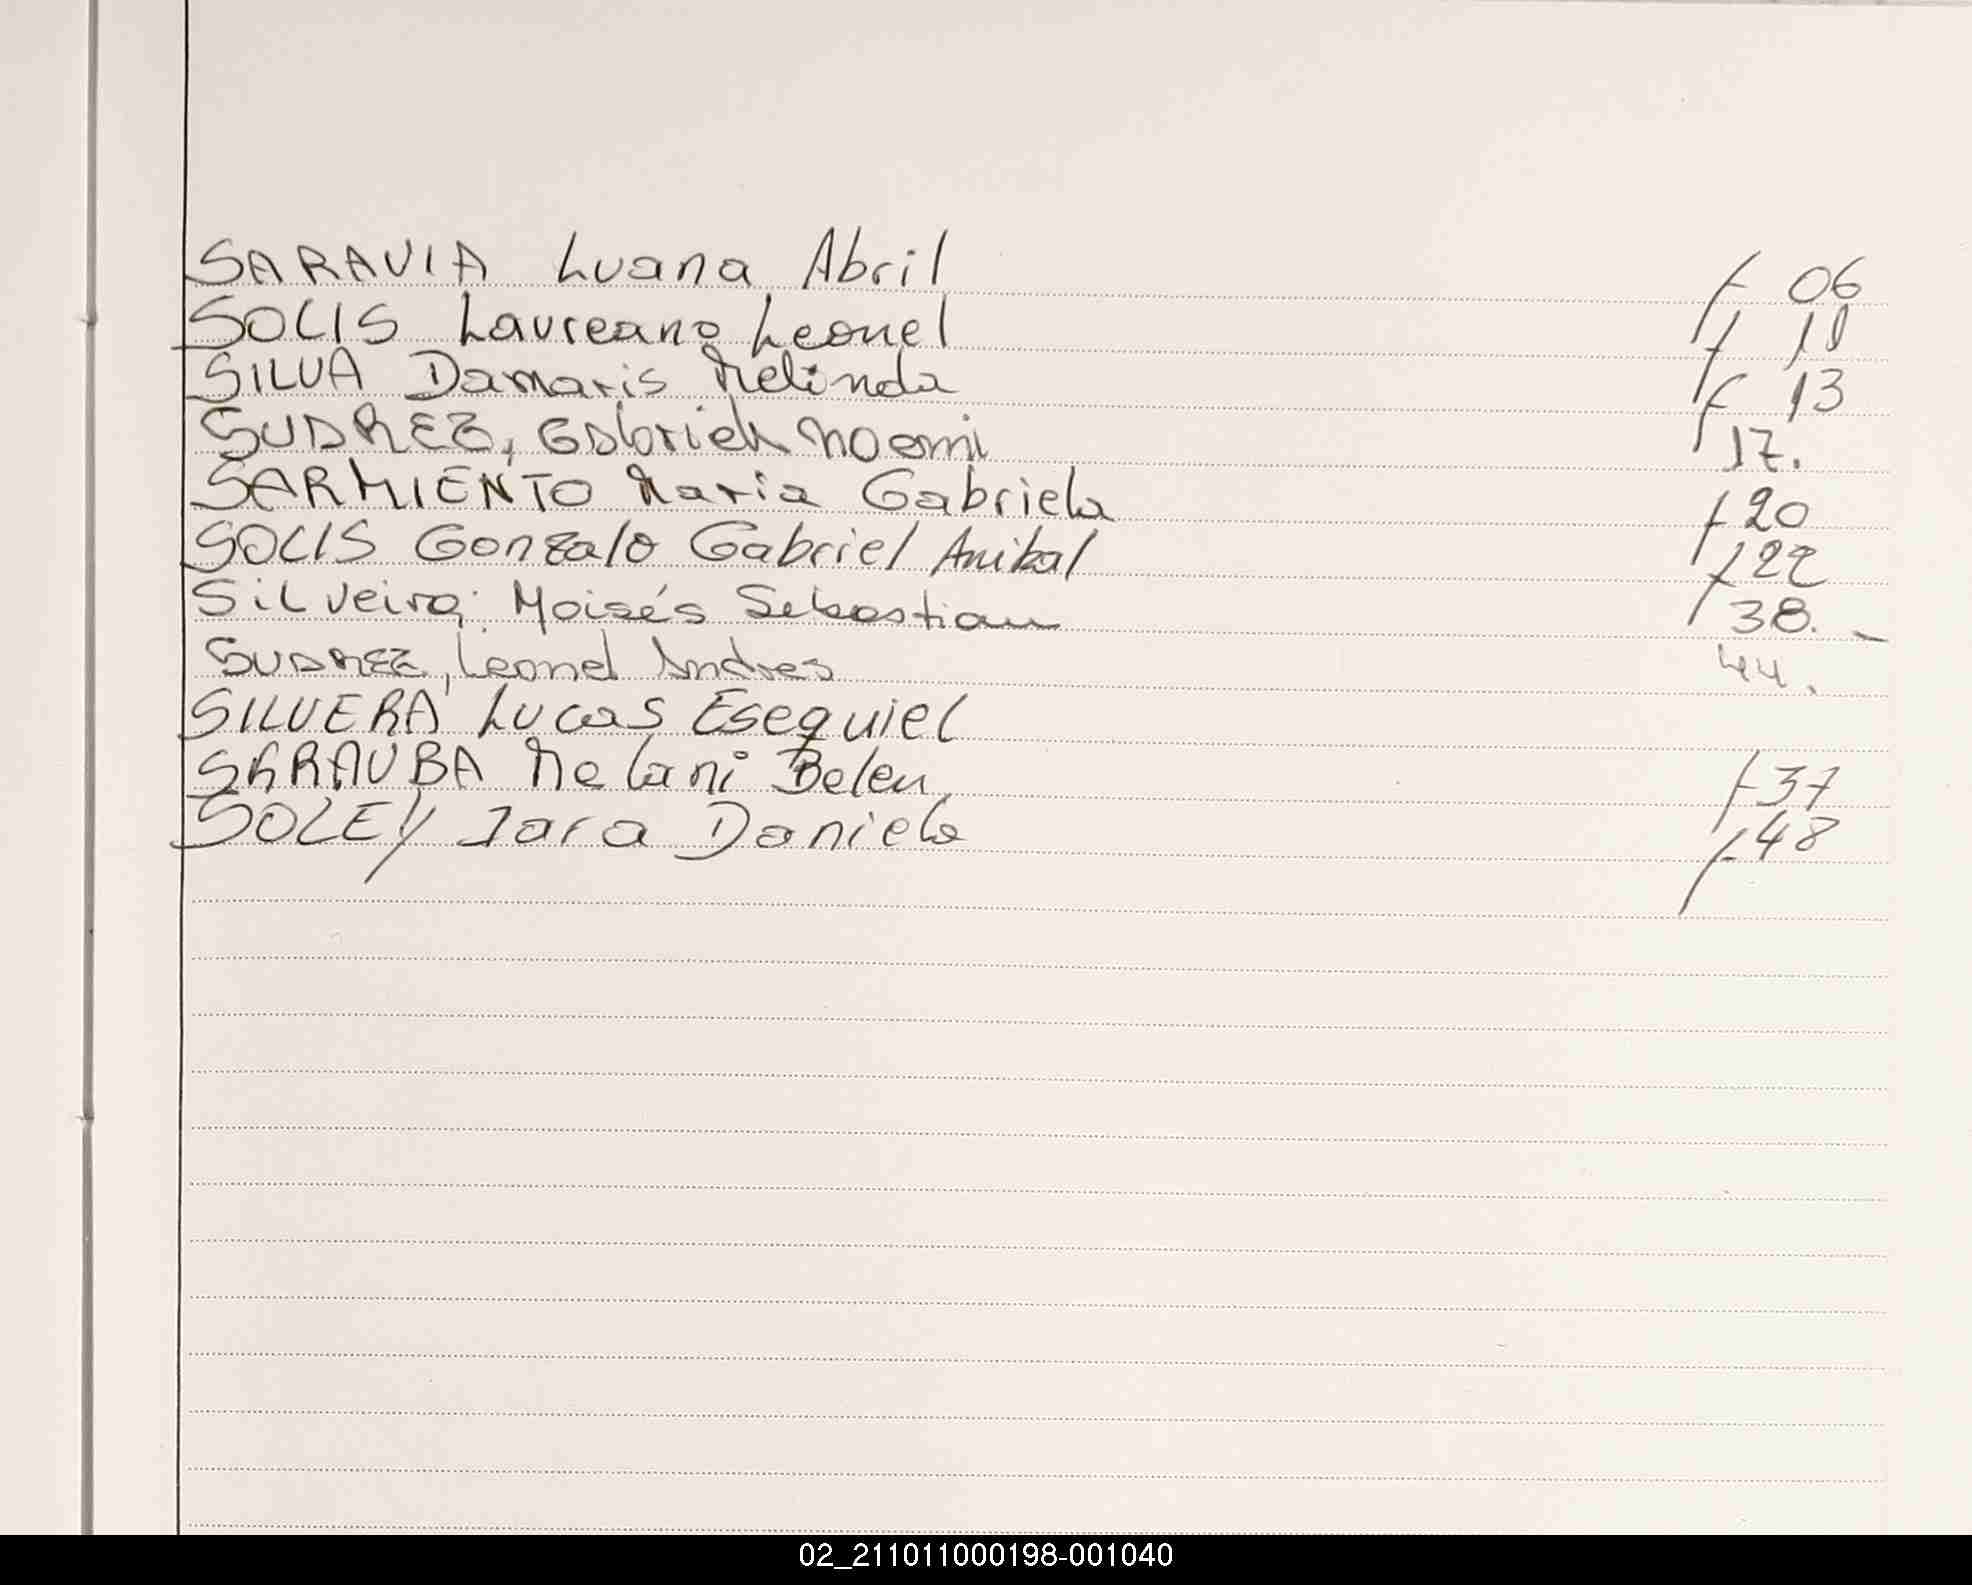 SARAVIA Luana Abril f 06
SOLIS Laureano Leonel f 10
SILVA Damaris Melinda f 13
SUAREZ, Gabriela Noemi f 17.
SARMIENTO Maria Gabriela f 20
SOLIS Gonzalo Gabriel Anibal f 22
Silveira; Moisés Sebastian 38.-
SUAREZ, Leonel Andres 44.
SILVERA Lucas Esequiel
SARAUBA Melani Belen f 37
SOLEY Iara Daniela f 48
02_211011000198-001040